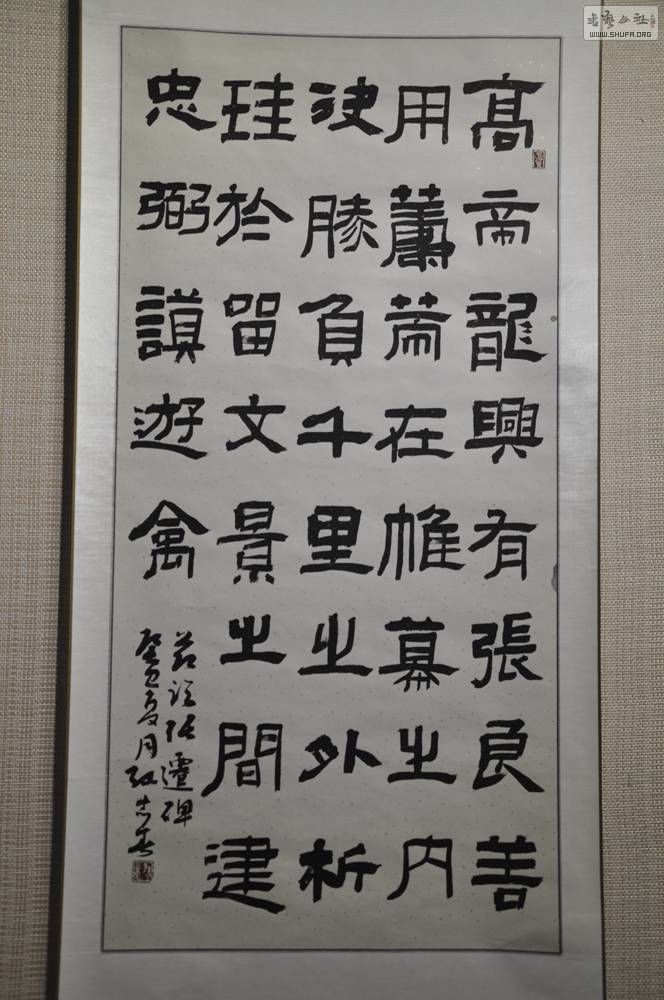 高帝龍興有張良善
用籌策在帷幕之内
決勝負千里之外析
珪於留文景之間建
忠弼謨遊禽
節臨張遷碑
癸巳夏月
书艺公社
WWW.SHUFA.ORG